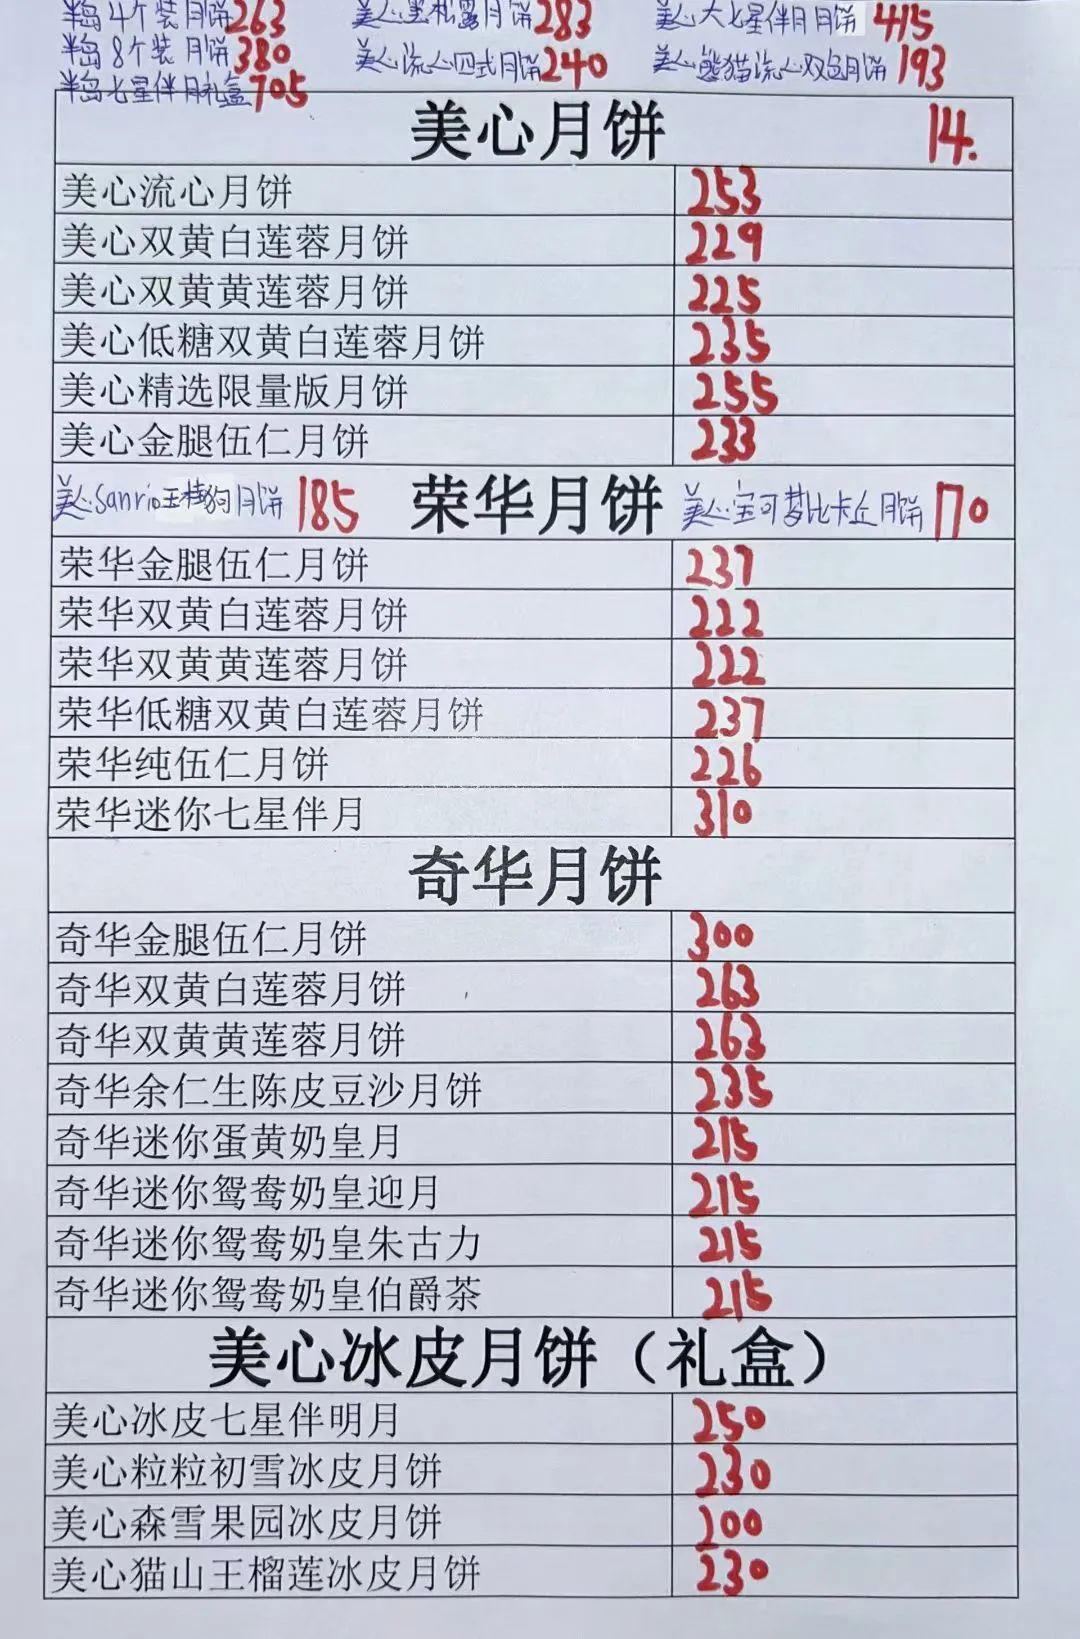 半岛4个装月饼263 美心黑松露月饼283 美心大七星伴月月饼415
半岛8个装月饼380 美心流心四式月饼240 美心熊猫流心双色月饼193
半岛七星伴月礼盒705
美心月饼 14.
美心流心月饼 253
美心双黄白莲蓉月饼 229
美心双黄黄莲蓉月饼 225
美心低糖双黄白莲蓉月饼 235
美心精选限量版月饼 255
美心金腿伍仁月饼 233
美心Sanrio玉桂狗月饼 185 荣华月饼 美心宝可梦比卡丘月饼 170
荣华金腿伍仁月饼 237
荣华双黄白莲蓉月饼 222
荣华双黄黄莲蓉月饼 222
荣华低糖双黄白莲蓉月饼 237
荣华纯伍仁月饼 226
荣华迷你七星伴月 310
奇华月饼
奇华金腿伍仁月饼 300
奇华双黄白莲蓉月饼 263
奇华双黄黄莲蓉月饼 263
奇华余仁生陈皮豆沙月饼 235
奇华迷你蛋黄奶皇月 215
奇华迷你鸳鸯奶皇迎月 215
奇华迷你鸳鸯奶皇朱古力 215
奇华迷你鸳鸯奶皇伯爵茶 215
美心冰皮月饼（礼盒）
美心冰皮七星伴明月 250
美心粒粒初雪冰皮月饼 230
美心森雪果园冰皮月饼 200
美心猫山王榴莲冰皮月饼 230